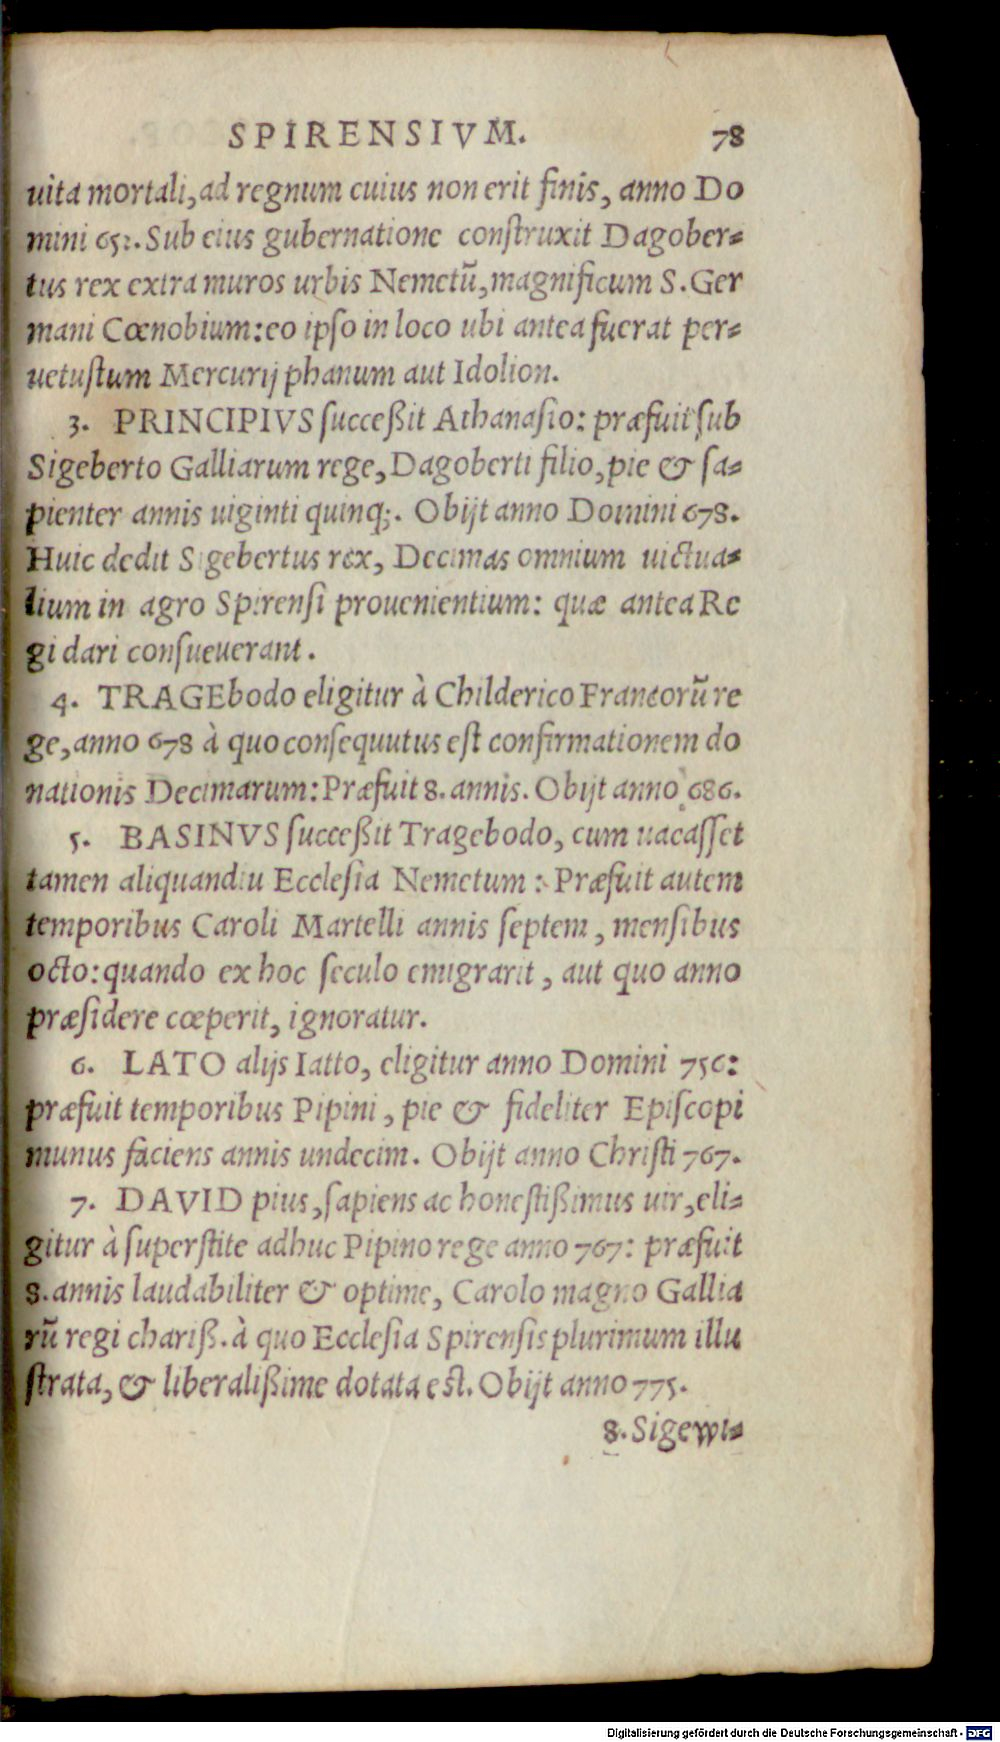 SPIRENSIVM. 78
uita mortali, ad regnum cuius non erit finis, anno Do
mini 652. Sub eius gubernatione construxit Dagober=
tus rex extra muros urbis Nemetū, magnificum S. Ger
mani Cœnobium: eo ipso in loco ubi antea fuerat per=
uetustum Mercurij phanum aut Idolion.
3. PRINCIPIVS succeßit Athanasio: præfuit sub
Sigeberto Galliarum rege, Dagoberti filio, pie & sa=
pienter annis uiginti quinq;. Obijt anno Domini 678.
Huic dedit Sigebertus rex, Decimas omnium uictua=
lium in agro Spirensi prouenientium: quæ antea Re
gi dari consueuerant.
4. TRAGEbodo eligitur à Childerico Francorū re
ge, anno 678 à quo consequutus est confirmationem do
nationis Decimarum: Præfuit 8. annis. Obijt anno 686.
5. BASINVS succeßit Tragebodo, cum uacasset
tamen aliquandiu Ecclesia Nemetum: Præfuit autem
temporibus Caroli Martelli annis septem, mensibus
octo: quando ex hoc seculo emigrarit, aut quo anno
præsidere cœperit, ignoratur.
6. LATO alijs Iatto, eligitur anno Domini 756:
præfuit temporibus Pipini, pie & fideliter Episcopi
munus faciens annis undecim. Obijt anno Christi 767.
7. DAVID pius, sapiens ac honestißimus uir, eli=
gitur à superstite adhuc Pipino rege anno 767: præfuit
8. annis laudabiliter & optime, Carolo magno Gallia
rū regi chariß. à quo Ecclesia Spirensis plurimum illu
strata, & liberalißime dotata est. Obijt anno 775.
8. Sigewi=
Digitalisierung gefördert durch die Deutsche Forschungsgemeinschaft - DFG